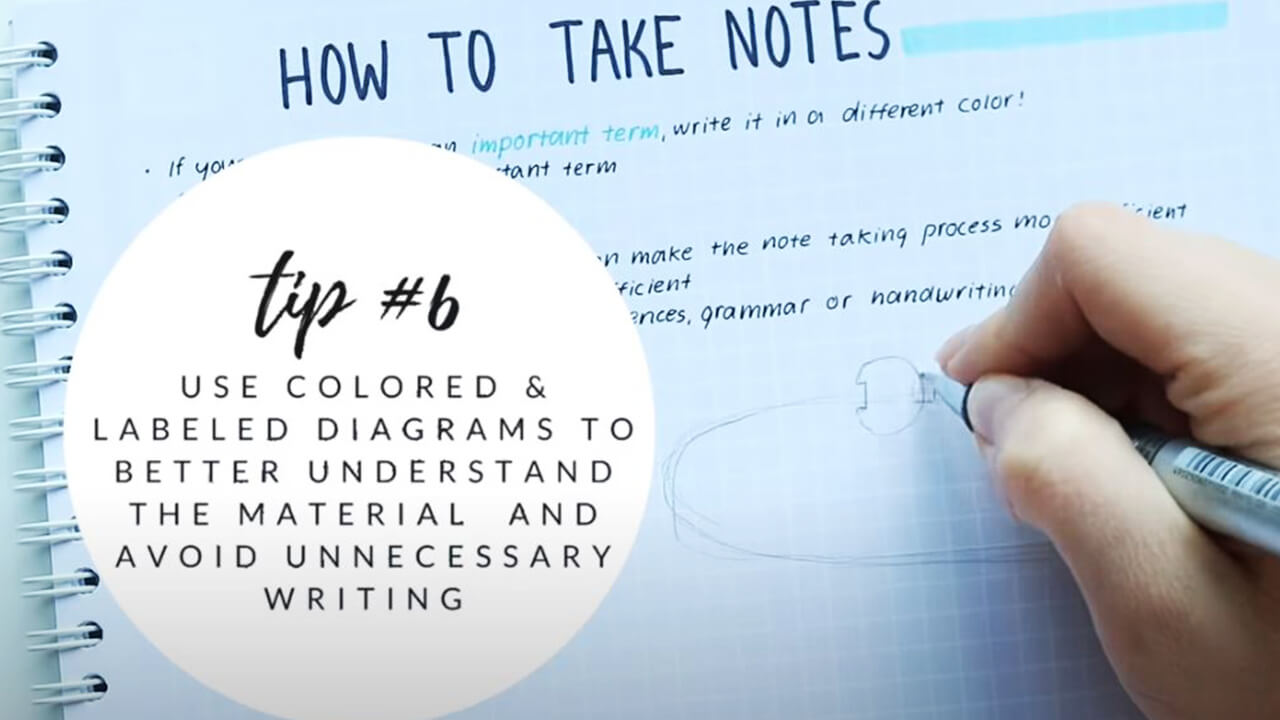 HOW TO TAKE NOTES
If you important term, write it in a different color!
term
make the note taking process
grammar or handwriting
tip #6
USE COLORED &
LABELED DIAGRAMS TO
BETTER UNDERSTAND
THE MATERIAL AND
AVOID UNNECESSARY
WRITING